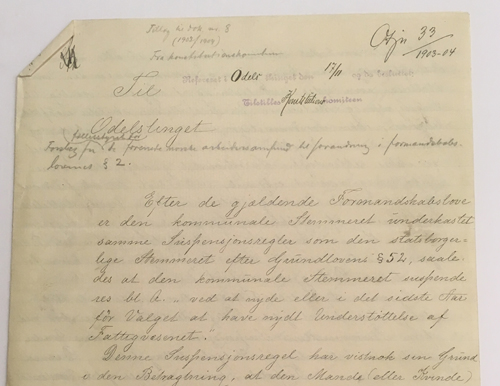 Tillæg til Dok. no. 8
(1903/1904)
Fra konstitutionskomiteen
O. Jn 33
1903-04
Refereret i Odels tinget den 17/11
Tilstilles Konstitutions komiteen
Til
Odelstinget
Forslag fra de forenede norske arbeidersamfund til forandring i formandskabs-
lovenes § 2.
Efter de gjældende Formandskabslove
er den kommunale Stemmeret underkastet
samme Suspensjonsregler som den statsborger-
lige Stemmeret efter Grundlovens § 52, saale-
des at den kommunale Stemmeret suspende
res bl. a. „ved at nyde eller i det sidste Aar
før Valget at have nydt Understøttelse af
Fattigvæsenet."
Denne Suspensjonsregel har vistnok sin Grund
i den Betragtning, at den Mand (eller Kvinde)